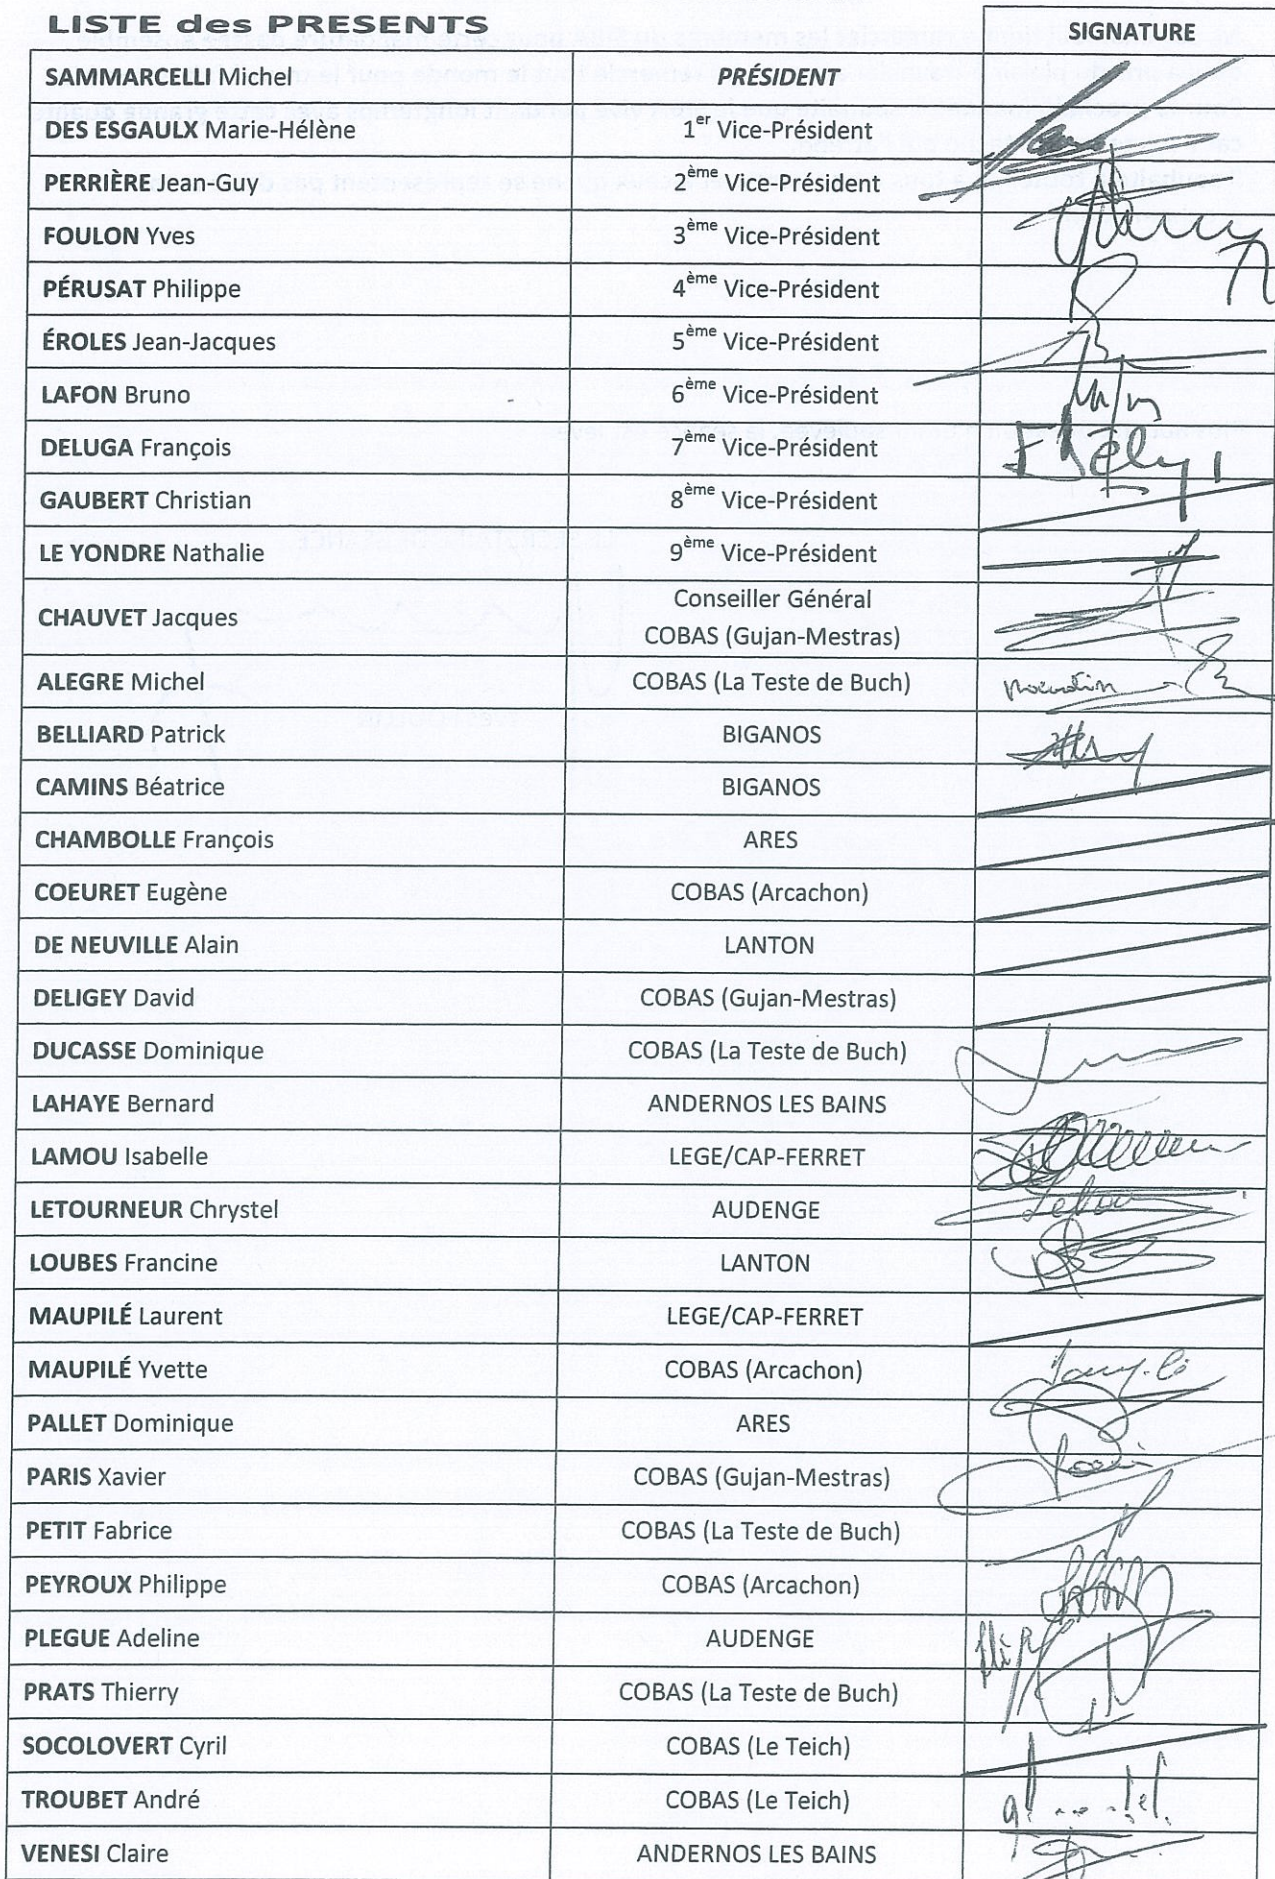 LISTE des PRESENTS
SIGNATURE
SAMMARCELLI Michel PRÉSIDENT
DES ESGAULX Marie-Hélène 1er Vice-Président
PERRIÈRE Jean-Guy 2ème Vice-Président
FOULON Yves 3ème Vice-Président
PÉRUSAT Philippe 4ème Vice-Président
ÉROLES Jean-Jacques 5ème Vice-Président
LAFON Bruno 6ème Vice-Président
DELUGA François 7ème Vice-Président
GAUBERT Christian 8ème Vice-Président
LE YONDRE Nathalie 9ème Vice-Président
CHAUVET Jacques Conseiller Général
COBAS (Gujan-Mestras)
ALEGRE Michel COBAS (La Teste de Buch)
BELLIARD Patrick BIGANOS
CAMINS Béatrice BIGANOS
CHAMBOLLE François ARES
COEURET Eugène COBAS (Arcachon)
DE NEUVILLE Alain LANTON
DELIGEY David COBAS (Gujan-Mestras)
DUCASSE Dominique COBAS (La Teste de Buch)
LAHAYE Bernard ANDERNOS LES BAINS
LAMOU Isabelle LEGE/CAP-FERRET
LETOURNEUR Chrystel AUDENGE
LOUBES Francine LANTON
MAUPILÉ Laurent LEGE/CAP-FERRET
MAUPILÉ Yvette COBAS (Arcachon)
PALLET Dominique ARES
PARIS Xavier COBAS (Gujan-Mestras)
PETIT Fabrice COBAS (La Teste de Buch)
PEYROUX Philippe COBAS (Arcachon)
PLEGUE Adeline AUDENGE
PRATS Thierry COBAS (La Teste de Buch)
SOCOLOVERT Cyril COBAS (Le Teich)
TROUBET André COBAS (Le Teich)
VENESI Claire ANDERNOS LES BAINS